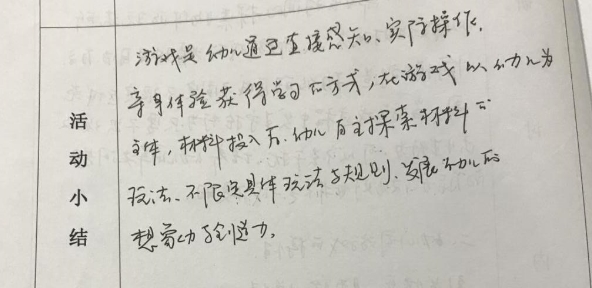 活动小结
游戏是幼儿通过直接感知、实际操作、
亲身体验获得学习的方式,在游戏以幼儿为
主体,材料投入后,幼儿自主探索材料的
玩法、不限定具体玩法与规则、发展幼儿的
想象力与创造力。